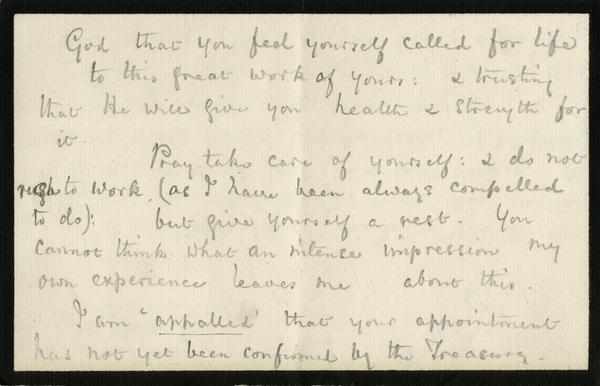 God that you feel yourself called for life
to this great work of yours: & trusting
that He will give you health & strength for
it.
Pray take care of yourself: & do not
rush to work, (as I have been always compelled
to do): but give yourself a rest. You
cannot think what an intense impression my
own experience leaves me about this.
I am 'appalled' that your appointment
has not yet been confirmed by the Treasury.